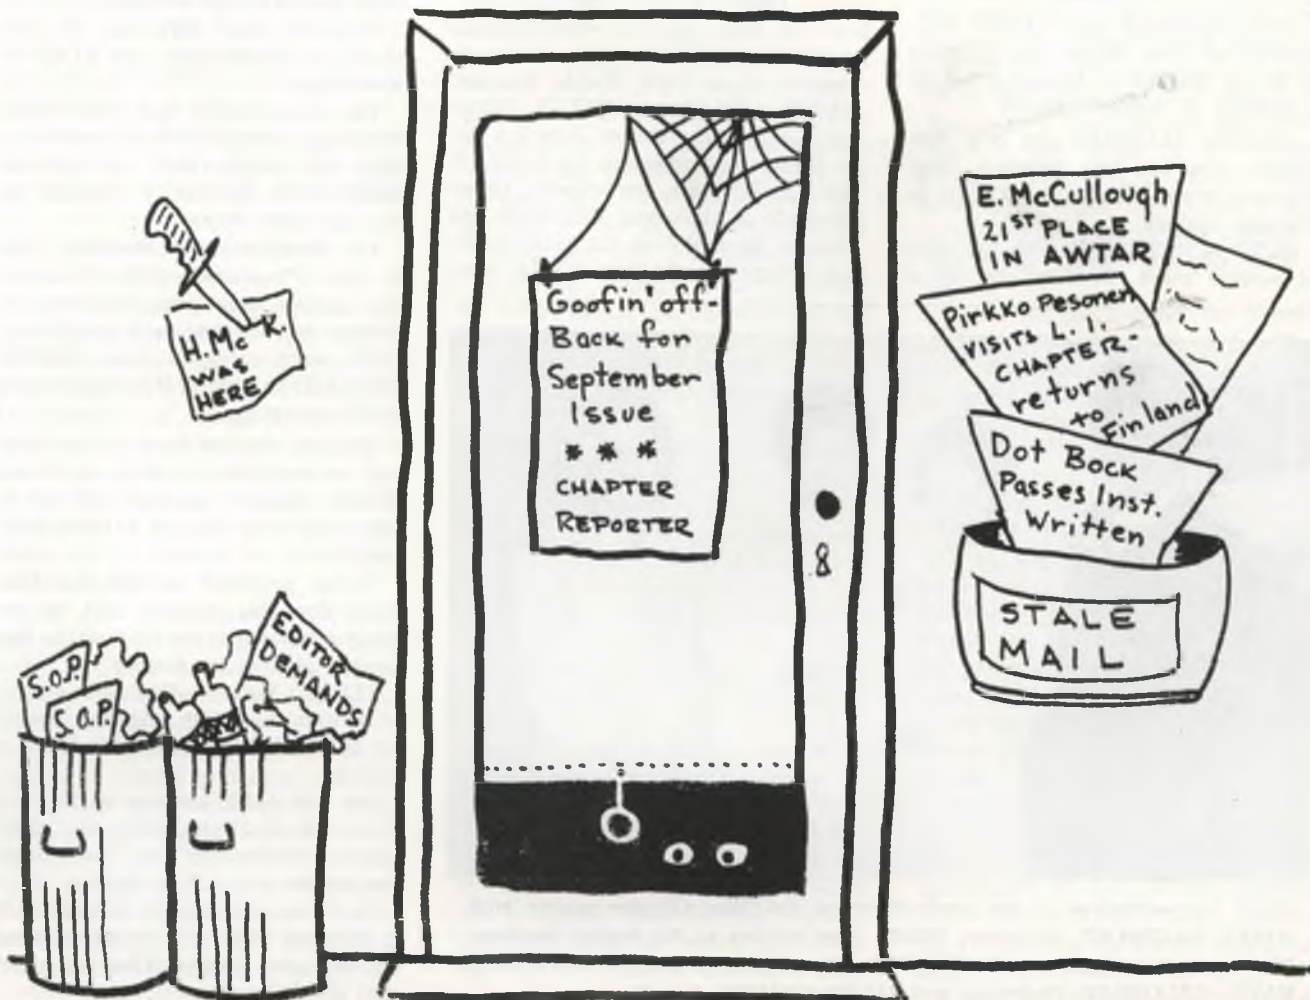 H. McK.
WAS
HERE
S.O.P.
S.O.P.
EDITOR
DEMANDS
Goofin' off-
Back for
September
Issue
* * *
CHAPTER
REPORTER
E. McCullough
21ST PLACE
IN AWTAR
Pirkko Pesonen
VISITS L. I.
CHAPTER-
returns
to Finland
Dot Bock
Passes Inst.
Written
STALE
MAIL